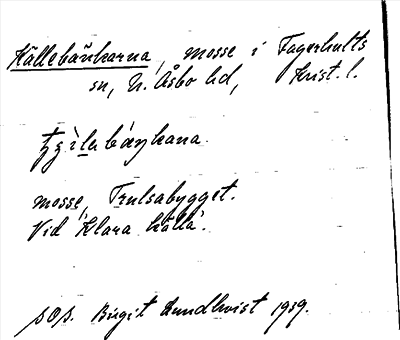 Källebänkarna, mosse i Fagerhults
sn, N. Åsbo hd, Krist. l.
bäŋkana.
mosse, Trulsabygget.
Vid "Klara källa".
SOS. Birgit Lundkvist 1939.